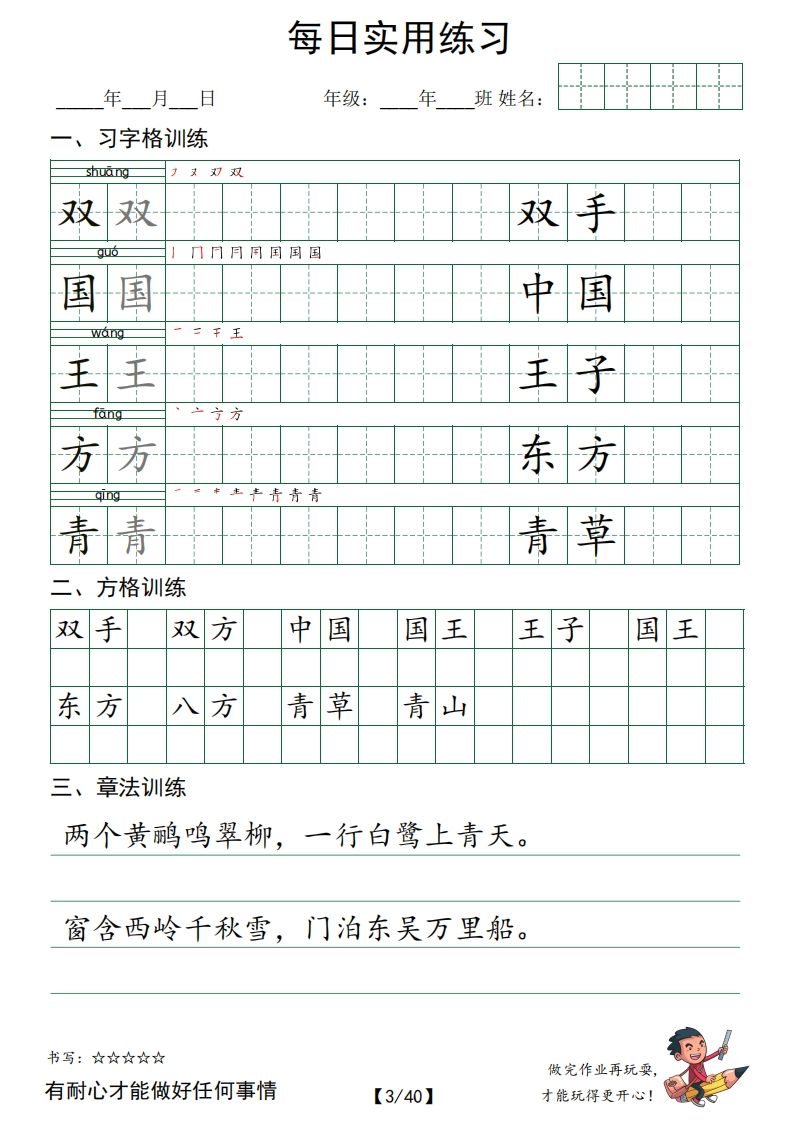 每日实用练习
_____年___月___日 年级：____年____班 姓名：
一、习字格训练
shuāng
双 双 双 手
guó
国 国 中 国
wáng
王 王 王 子
fāng
方 方 东 方
qīng
青 青 青 草
二、方格训练
双 手 双 方 中 国 国 王 王 子 国 王
东 方 八 方 青 草 青 山
三、章法训练
两个黄鹂鸣翠柳，一行白鹭上青天。
窗含西岭千秋雪，门泊东吴万里船。
书写：☆☆☆☆☆
有耐心才能做好任何事情
【3/40】
做完作业再玩耍，
才能玩得更开心！